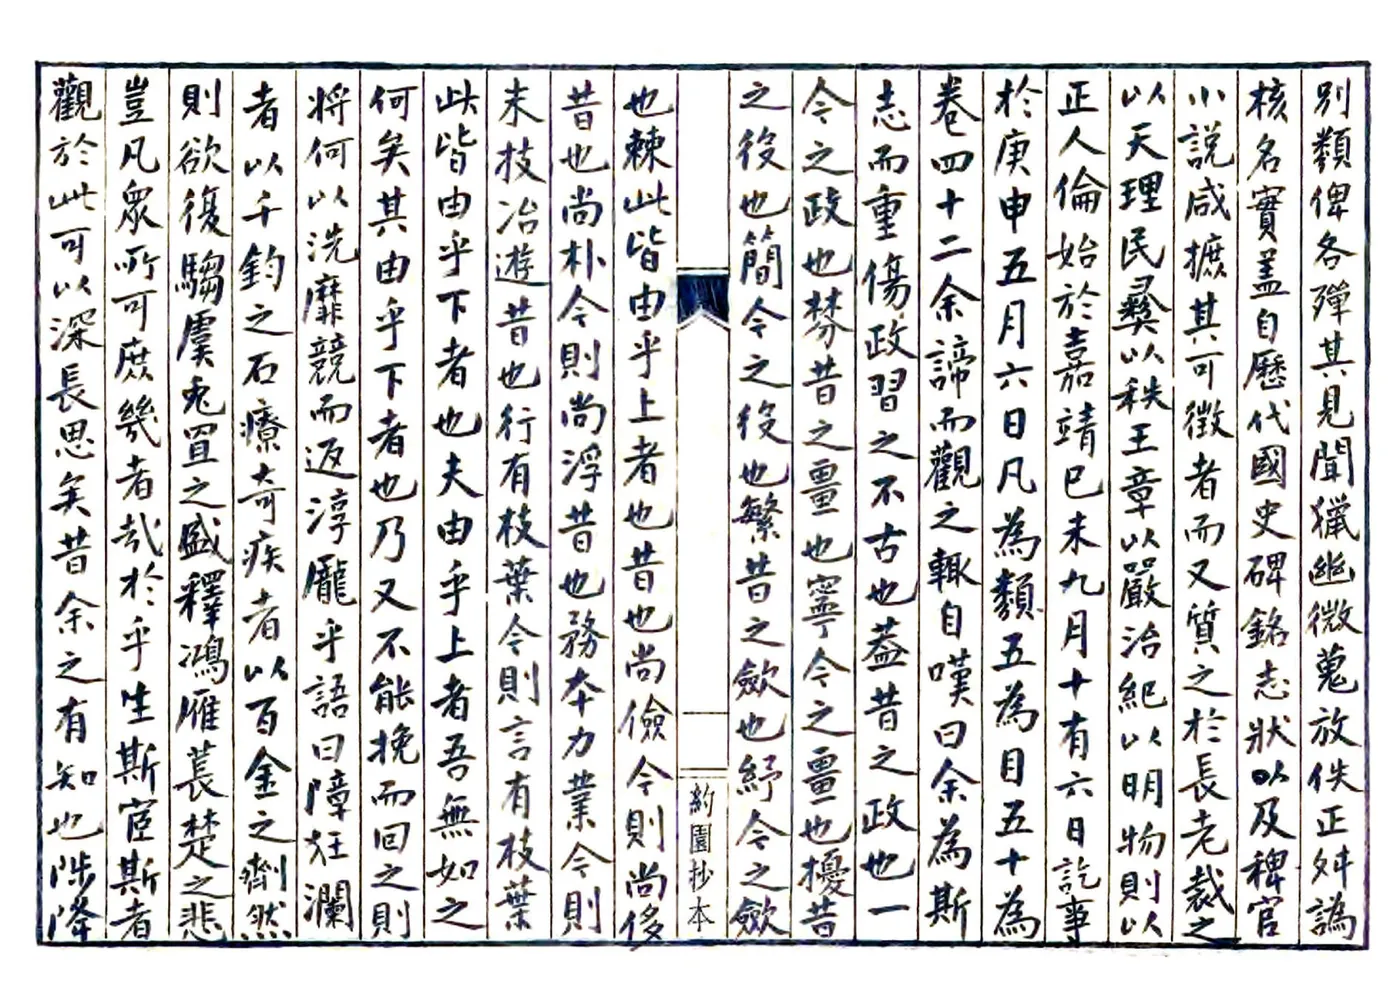 別類俾各殫其見聞獵幽微蒐放佚正舛譌
核名實蓋自歷代國史碑銘志狀以及稗官
小說咸摭其可徵者而又質之於長老裁之
以天理民彝以秩王章以嚴治紀以明物則以
正人倫始於嘉靖巳未九月十有六日訖事
於庚申五月六日凡為類五為目五十為
卷四十二余諦而觀之輒自嘆曰余為斯
志而重傷政習之不古也蓋昔之政也一
今之政也棼昔之疆也寧今之疆也擾昔
之役也簡今之役也繁昔之歛也紓今之歛
也棘此皆由乎上者也昔也尚儉今則尚侈
昔也尚朴今則尚浮昔也務本力業今則
末技冶遊昔也行有枝葉今則言有枝葉
此皆由乎下者也夫由乎上者吾無如之
何矣其由乎下者也乃又不能挽而回之則
將何以洗靡競而返淳龐乎語曰障狂瀾
者以千鈞之石療奇疾者以百金之劑然
則欲復騶虞兎罝之盛釋鴻雁萇楚之悲
豈凡眾所可庶幾者哉於乎生斯宦斯者
觀於此可以深長思矣昔余之有知也陟降
約園抄本